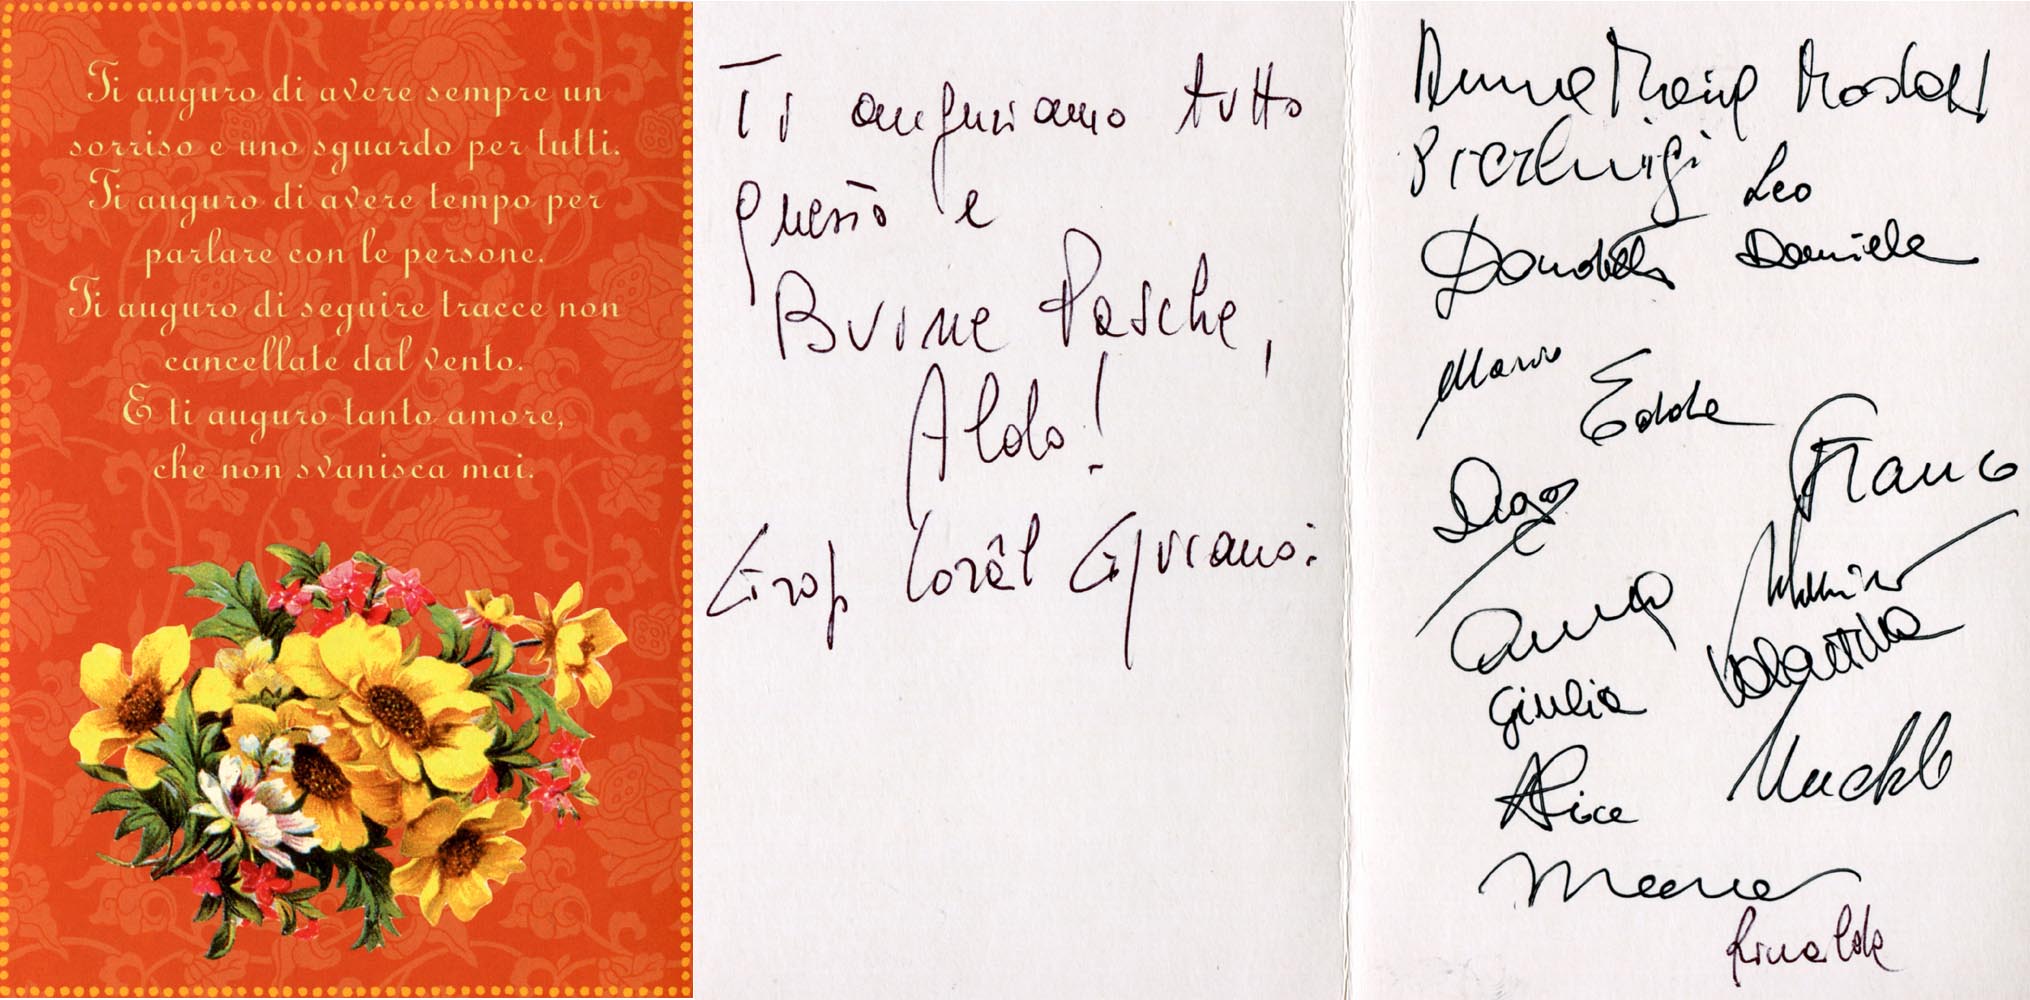 Ti auguro di avere sempre un
sorriso e uno sguardo per tutti.
Ti auguro di avere tempo per
parlare con le persone.
Ti auguro di seguire tracce non
cancellate dal vento.
E ti auguro tanto amore,
che non svanisca mai.
Ti auguriamo tutto
questo e
Buona Pasqua,
Aldo!
Grop Corâl
Anna Maria
Pierluigi
Leo
Donatella Daniela
Mario
Edda
Franco
Anna
Valentina
Giulia
Alice
Rinalda